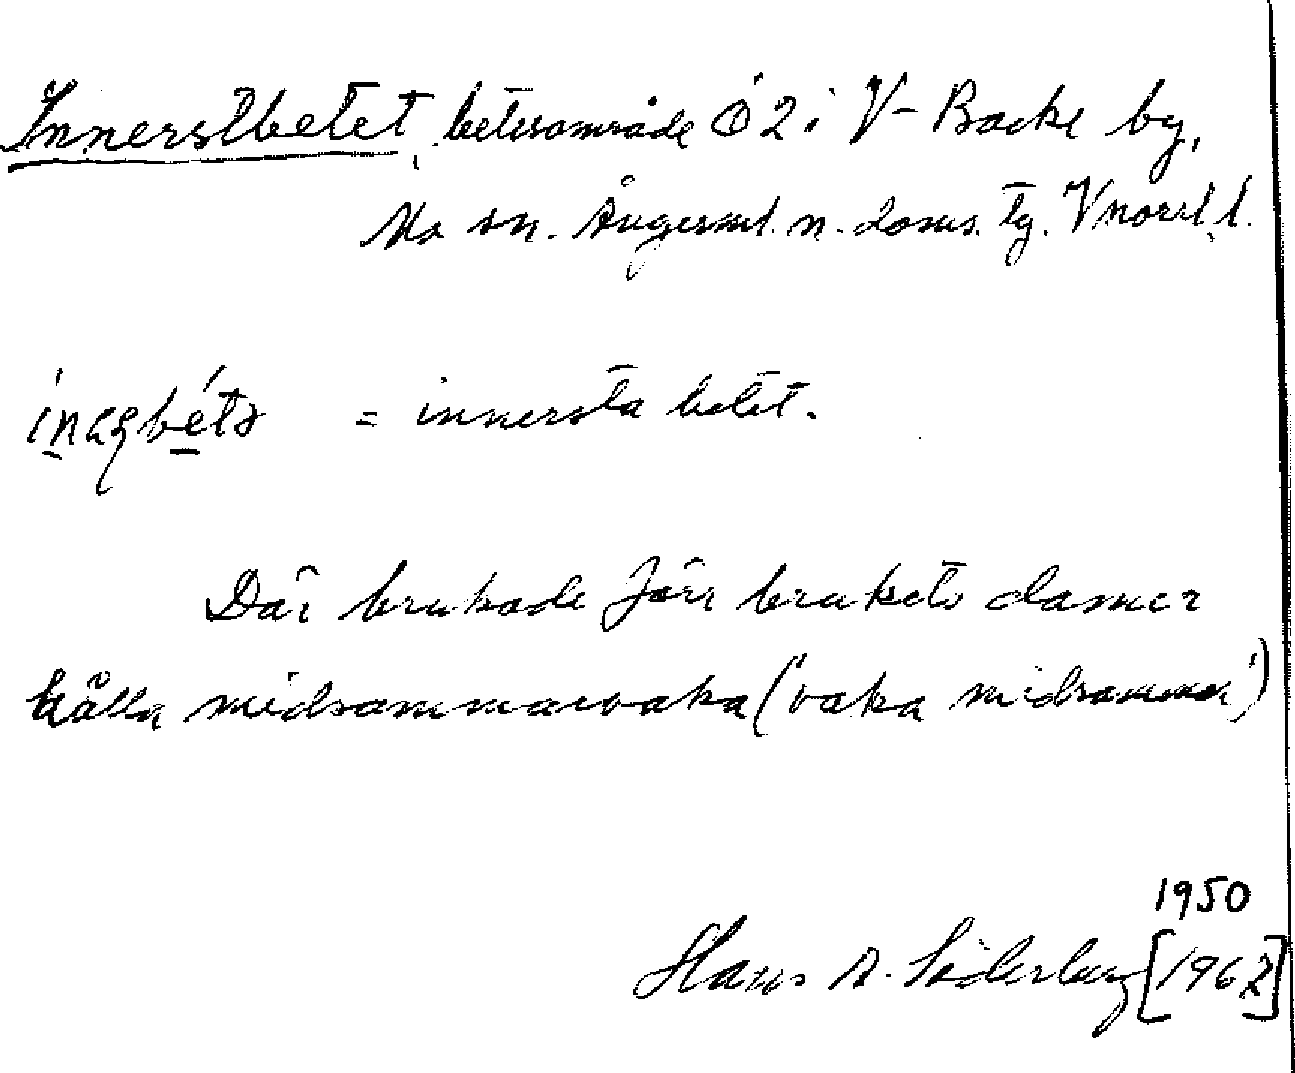 Innerstbetet, betesområde Ö 2 i V- Backe by,
sn. Ångerml. n. doms. tg. Vnorrl. l.
= innersta betet.
Där brukade förr brukets damer
hålla midsommarvaka ('vaka midsommar')
1950
Hans A. Söderberg [1962]